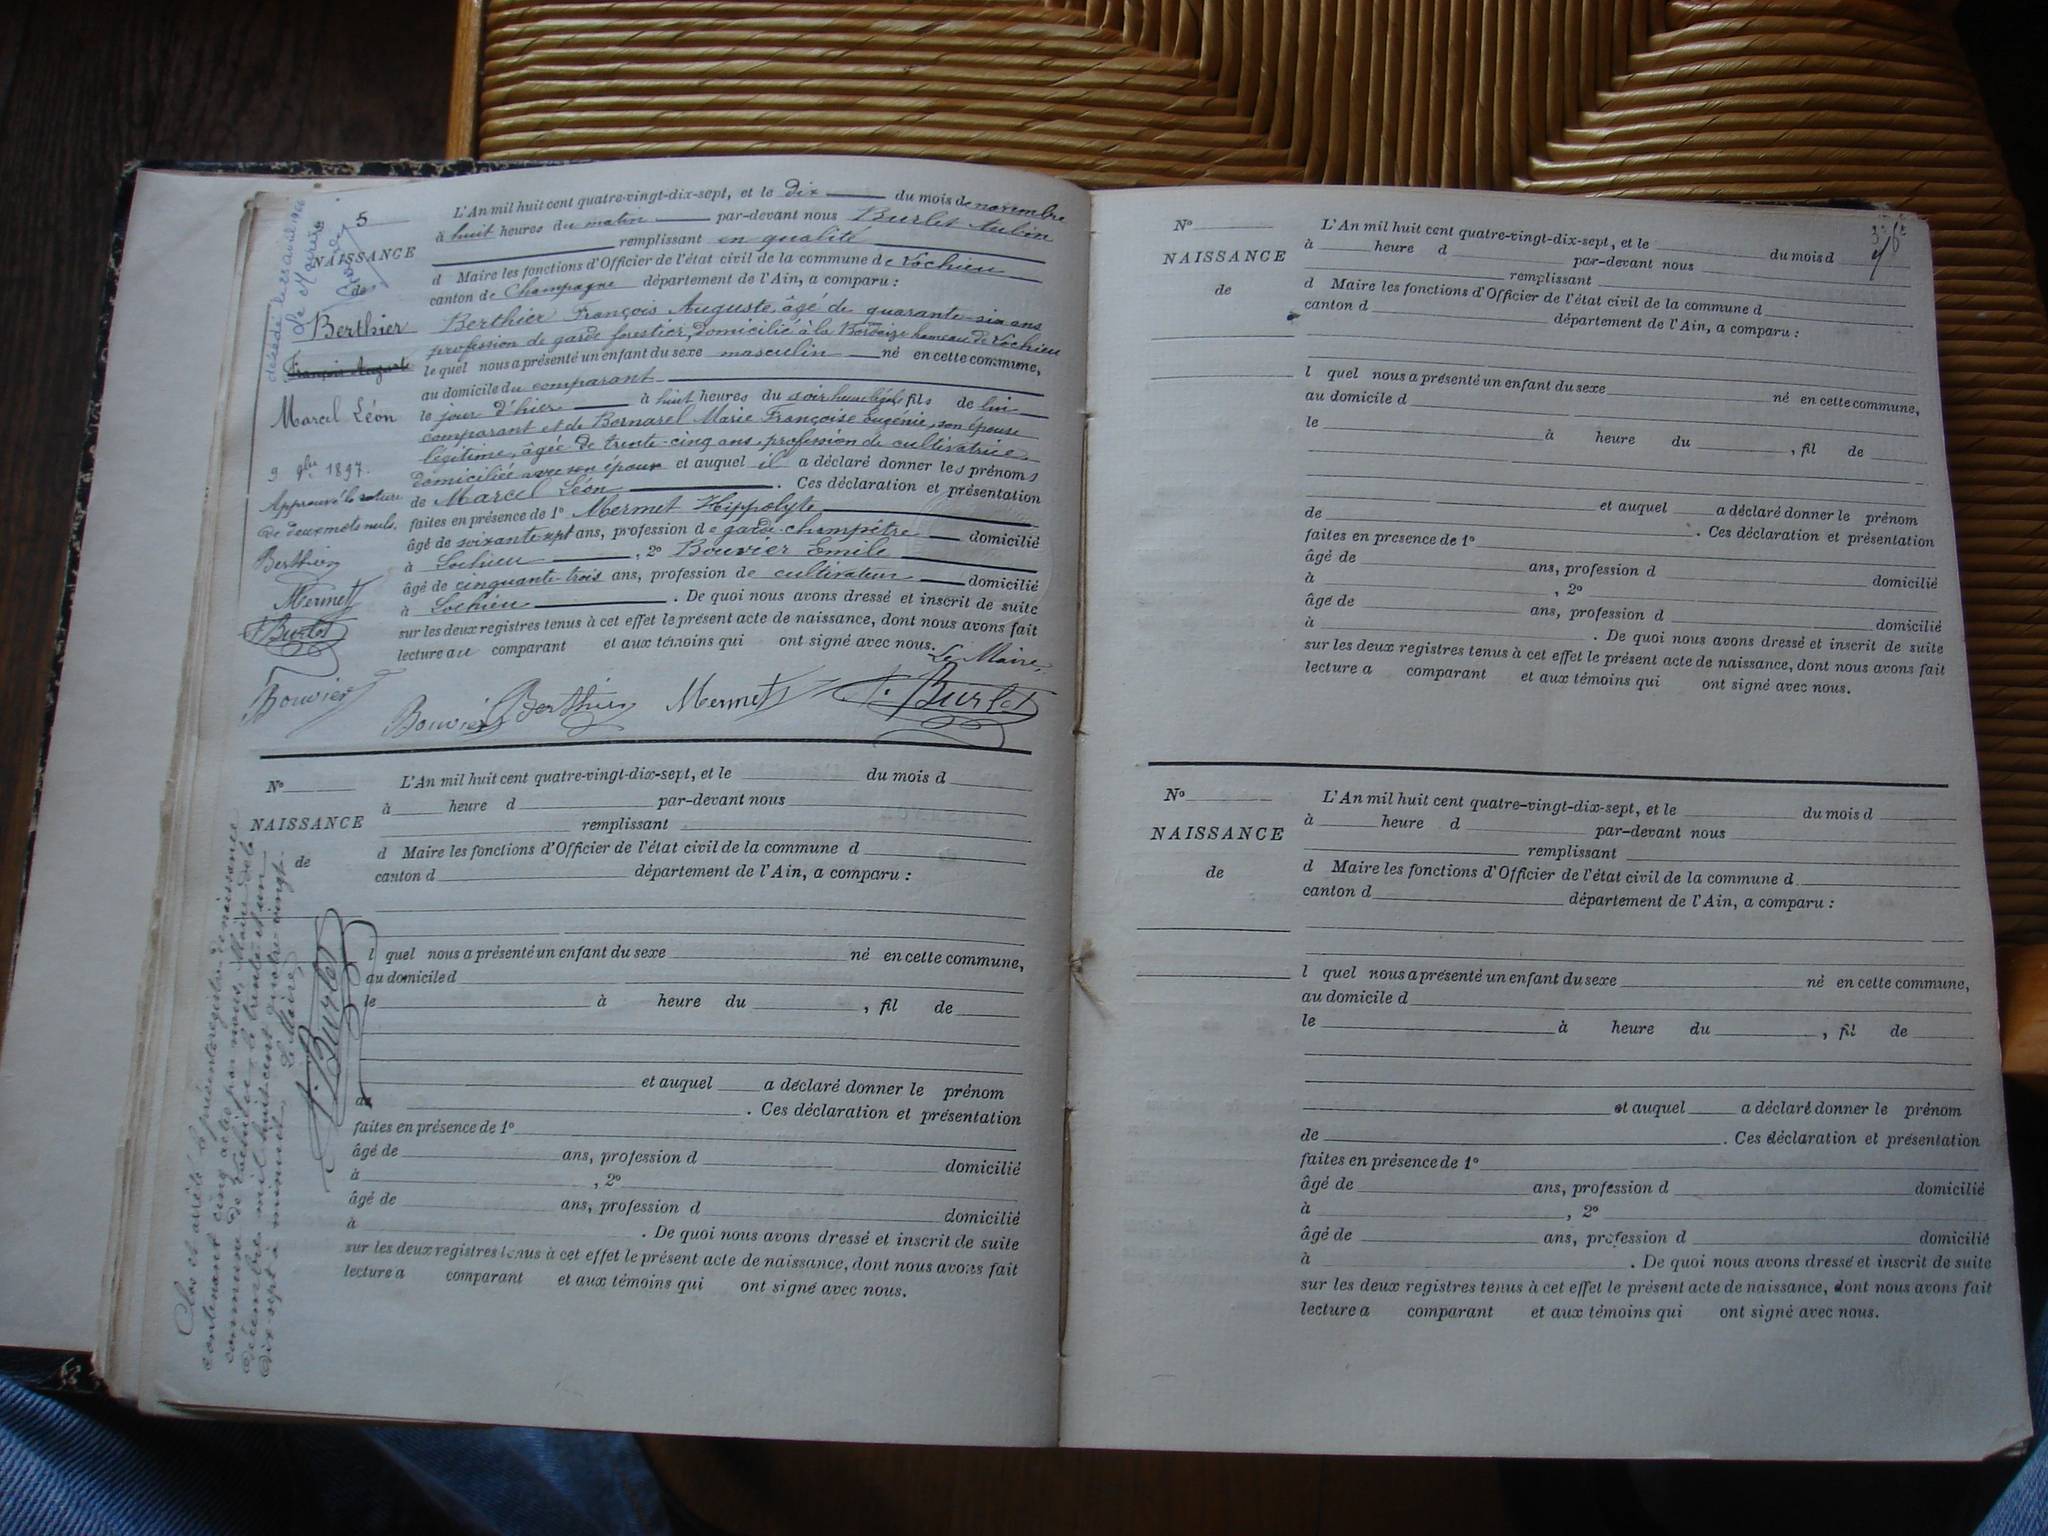 5
NAISSANCE
de
Berthier
François Auguste
Marcel Léon
9 9bre 1897.
Approuvé la rature
de deux mots nuls.
Berthier
Mermet
Burlet
Bouvier
décédé le 22 avril 19
Le Maire
L'An mil huit cent quatre-vingt-dix-sept, et le dix du mois de novembre
à huit heures du matin par-devant nous Burlet Aubin
remplissant en qualité
d Maire les fonctions d'Officier de l'état civil de la commune de Lochieu
canton de Champagne département de l'Ain, a comparu :
Berthier François Auguste, âgé de quarante-six ans
profession de garde forestier, domicilié à la hameau de Lochieu
le quel nous a présenté un enfant du sexe masculin né en cette commune,
au domicile du comparant
le jour d'hier à huit heures du soir fils de lui
comparant et de Bornarel Marie Françoise Eugénie, son épouse
légitime, âgée de trente-cinq ans, profession de cultivatrice
domiciliée avec son époux et auquel il a déclaré donner les prénoms
de Marcel Léon . Ces déclaration et présentation
faites en présence de 1º Mermet Hippolyte
âgé de soixante-sept ans, profession de garde-champêtre domicilié
à Lochieu , 2º Bouvier Emile
âgé de cinquante-trois ans, profession de cultivateur domicilié
à Lochieu . De quoi nous avons dressé et inscrit de suite
sur les deux registres tenus à cet effet le présent acte de naissance, dont nous avons fait
lecture au comparant et aux témoins qui ont signé avec nous.
Le Maire,
Bouvier Berthier Mermet Burlet
Nº
NAISSANCE
de
L'An mil huit cent quatre-vingt-dix-sept, et le du mois d
à heure d par-devant nous
remplissant
d Maire les fonctions d'Officier de l'état civil de la commune d
canton d département de l'Ain, a comparu :
l quel nous a présenté un enfant du sexe né en cette commune,
au domicile d
le à heure du , fil de
et auquel a déclaré donner le prénom
de . Ces déclaration et présentation
faites en présence de 1º
âgé de ans, profession d domicilié
à , 2º
âgé de ans, profession d domicilié
à . De quoi nous avons dressé et inscrit de suite
sur les deux registres tenus à cet effet le présent acte de naissance, dont nous avons fait
lecture a comparant et aux témoins qui ont signé avec nous.
Clos et arrêté le présent registre de naissance
contenant cinq actes par nous, Maire de la
commune de Lochieu, le trente et un
décembre mil huit cent quatre-vingt-
dix-sept à minuit.
Le Maire,
Burlet
Nº
NAISSANCE
de
L'An mil huit cent quatre-vingt-dix-sept, et le du mois d
à heure d par-devant nous
remplissant
d Maire les fonctions d'Officier de l'état civil de la commune d
canton d département de l'Ain, a comparu :
l quel nous a présenté un enfant du sexe né en cette commune,
au domicile d
le à heure du , fil de
et auquel a déclaré donner le prénom
de . Ces déclaration et présentation
faites en présence de 1º
âgé de ans, profession d domicilié
à , 2º
âgé de ans, profession d domicilié
à . De quoi nous avons dressé et inscrit de suite
sur les deux registres tenus à cet effet le présent acte de naissance, dont nous avons fait
lecture a comparant et aux témoins qui ont signé avec nous.
Nº
NAISSANCE
de
L'An mil huit cent quatre-vingt-dix-sept, et le du mois d
à heure d par-devant nous
remplissant
d Maire les fonctions d'Officier de l'état civil de la commune d
canton d département de l'Ain, a comparu :
l quel nous a présenté un enfant du sexe né en cette commune,
au domicile d
le à heure du , fil de
et auquel a déclaré donner le prénom
de . Ces déclaration et présentation
faites en présence de 1º
âgé de ans, profession d domicilié
à , 2º
âgé de ans, profession d domicilié
à . De quoi nous avons dressé et inscrit de suite
sur les deux registres tenus à cet effet le présent acte de naissance, dont nous avons fait
lecture a comparant et aux témoins qui ont signé avec nous.